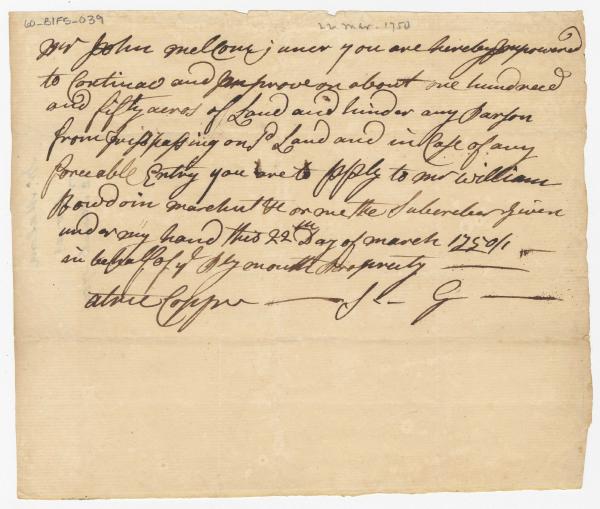 60-BIFS-039
22 Mar. 1750
Mr John melCour juner you are hereby Impowered
to Continao and Improve on about one hundreed
and fifty acros of Land and hinder any Parson
from trisspassing on sd Land and in Case of any
forceable Entry you are to Apply to mr William
Bowdoin marchnt &c or me the Suberiber Given
under my hand this 22th Day of march 1750/1
in behalf of ye Plymouth Propriety
atrue Coppe — S — G —